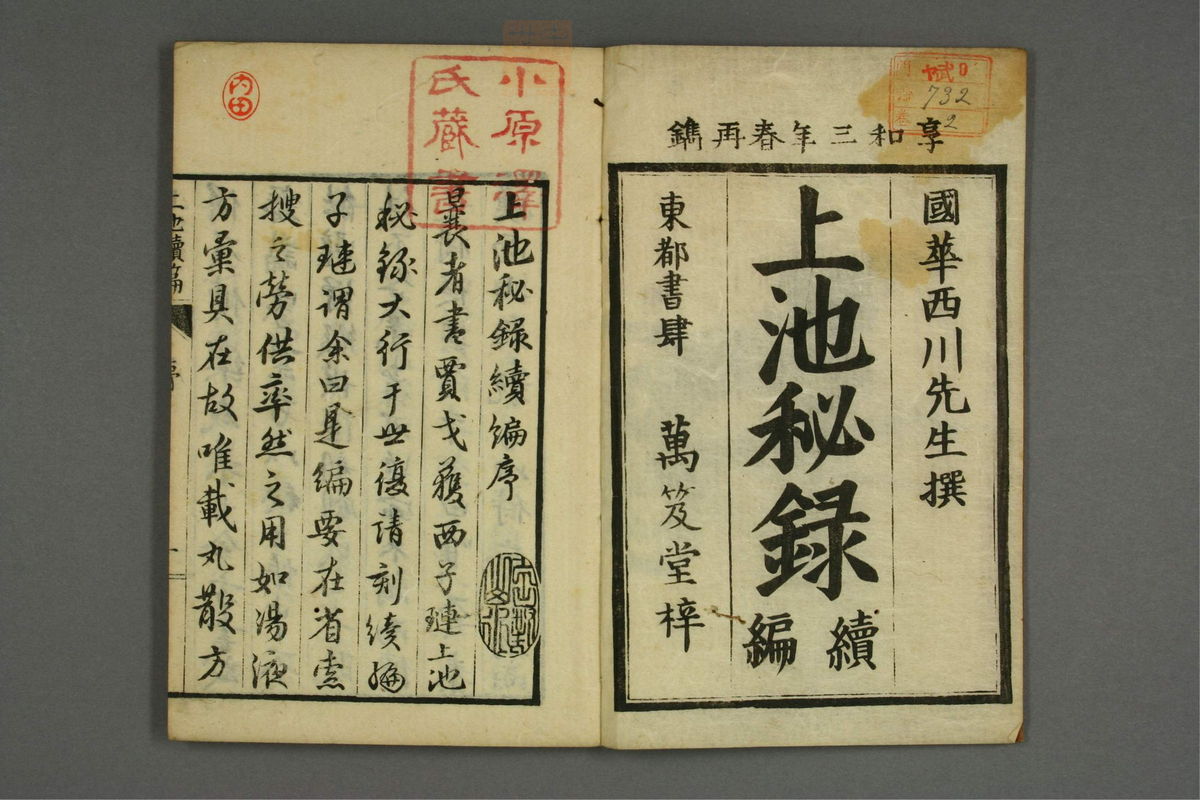 享和三年春再鐫
國華西川先生撰
上池秘録
續編
東都書肆 萬笈堂梓
732
2
小原澤
氏蔵書
内田
上池秘録續編序
曩者書賈戈獲西子璉上池
秘錄大行于世復請刻續編
子璉謂余曰是編要在省索
搜之勞供率然之用如湯液
方彙具在故唯載丸散方
上池續篇
序
一